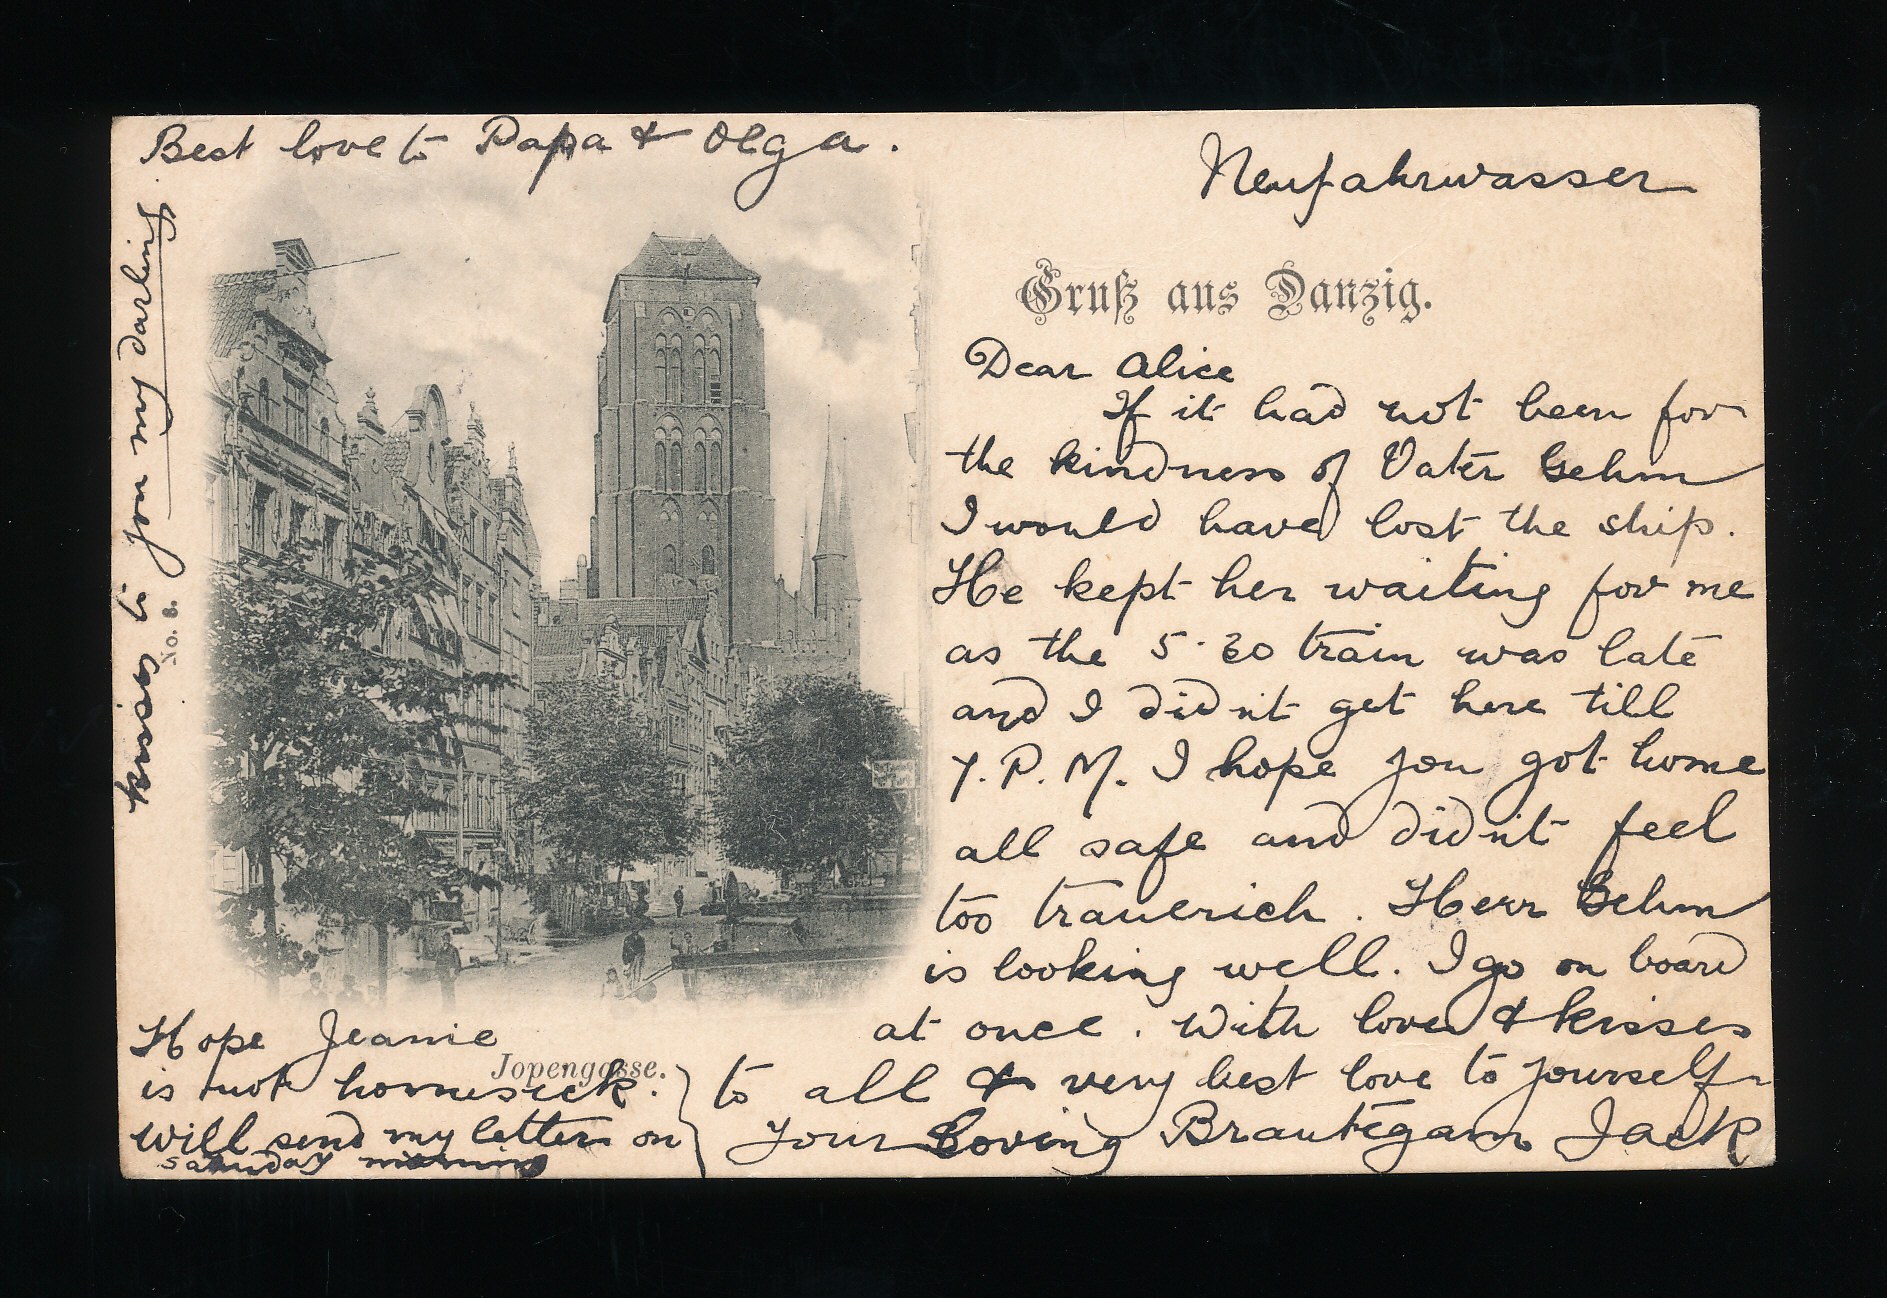 Best love to Papa & Olga.
kisses to you my darling
No. 8.
Neufahrwasser
Gruß aus Danzig.
Dear Alice
If it had not been for
the kindness of Vater Gehm
I would have lost the ship.
He kept her waiting for me
as the 5.30 train was late
and I didn't get here till
7. P. M. I hope you got home
all safe and didn't feel
too trauerich. Herr Gehm
is looking well. I go on board
at once. With love & kisses
to all & very best love to yourself
Your Loving Brautegam Jack
Hope Jeanie
Jopengasse.
is not homesick.
Will send my letter on
saturday morning